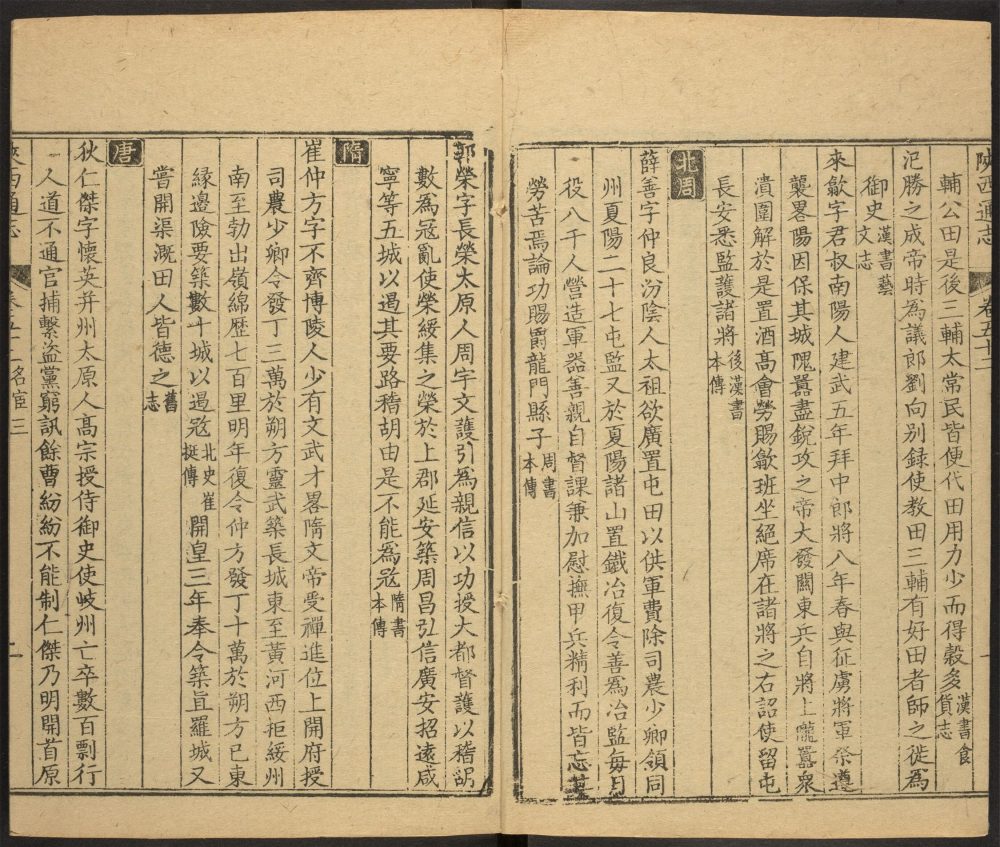 陝西通志 卷五十二 一
輔公田是後三輔太常民皆便代田用力少而得穀多漢書食貨志
氾勝之成帝時為議郎劉向别録使教田三輔有好田者師之徙為
御史漢書藝文志
來歙字君叔南陽人建武五年拜中郎將八年春與征虜將軍祭遵
襲畧陽因保其城隗囂盡銳攻之帝大發關東兵自將上隴囂衆
潰圍解於是置酒高會勞賜歙班坐絕席在諸將之右詔使留屯
長安悉監護諸將後漢書本傳
北周
薛善字仲良汾陰人太祖欲廣置屯田以供軍費除司農少卿領同
州夏陽二十七屯監又於夏陽諸山置鐵冶復令善為冶監每月
役八千人營造軍器善親自督課兼加慰撫甲兵精利而皆忘其
勞苦焉論功賜爵龍門縣子周書本傳
郭榮字長榮太原人周宇文護引為親信以功授大都督護以稽胡
數為寇亂使榮綏集之榮於上郡延安築周昌弘信廣安招遠咸
寧等五城以遏其要路稽胡由是不能為寇隋書本傳
隋
崔仲方字不齊博陵人少有文武才畧隋文帝受禪進位上開府授
司農少卿令發丁三萬於朔方靈武築長城東至黃河西拒綏州
南至勃出嶺綿歷七百里明年復令仲方發丁十萬於朔方已東
緣邊險要築數十城以遏寇北史崔挺傳開皇三年奉令築亘羅城又
嘗開渠溉田人皆德之舊志
唐
狄仁傑字懷英并州太原人高宗授侍御史使岐州亡卒數百剽行
人道不通官捕繫盜黨窮訊餘曹紛紛不能制仁傑乃明開首原
陝西通志 卷五十二名宦三 二